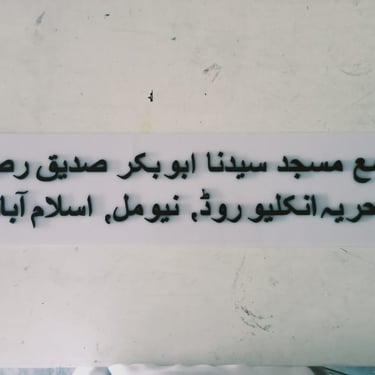 مع مسجد سیدنا ابوبکر صدیق رض
حریہ انکلیو روڈ, نیومل, اسلام آبا